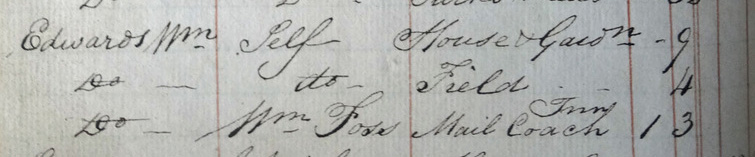 Edwards Wm Self House & Gardn - 9
Do — do - Field - - 4
Do — Wm Foss Mail Coach Inn 1 3